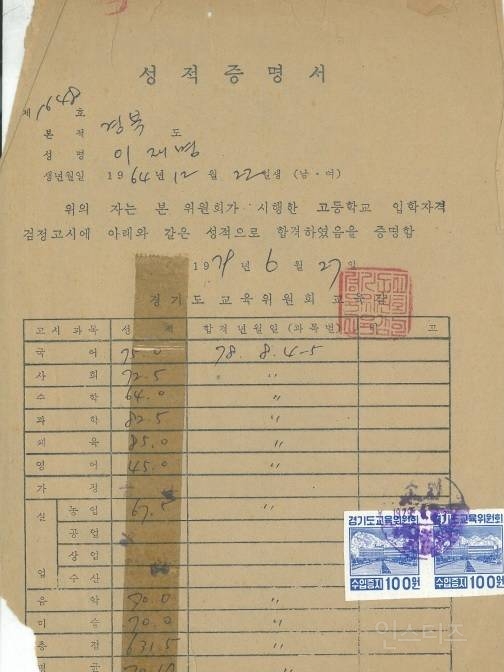 성적증명서
제 1648 호
본적 경북 도
성명 이재명
생년월일 1964년 12월 22일생 (남·여)
위의 자는 본 위원회가 시행한 고등학교 입학자격
검정고시에 아래와 같은 성적으로 합격하였음을 증명함
1979년 6월 27일
경기도교육위원회 교육감
고시과목 성적 합격년월일(과목별) 비고
국어 75.0 78. 8. 4-5
사회 72.5 〃
수학 64.0 〃
과학 82.5 〃
체육 85.0 〃
영어 45.0 〃
가정
실업 농업 67.5 〃
공업
상업
수산
음악 70.0 〃
미술 70.0 〃
총점 631.5
평균
경기도교육위원회 경기도교육위원회
수입증지 100원 수입증지 100원
인스티즈